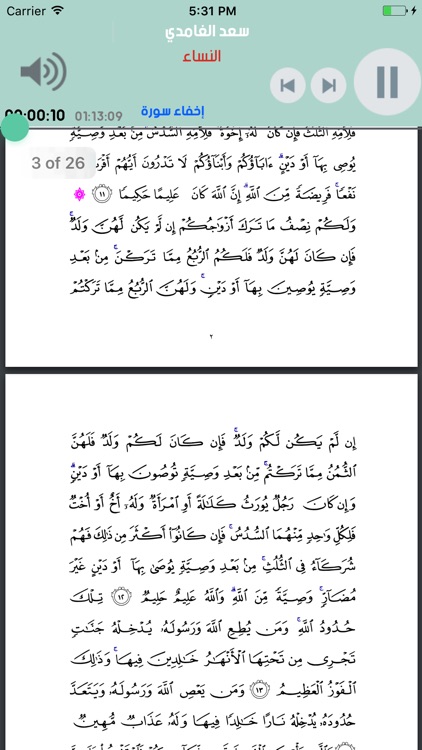 Carrier 5:31 PM
سعد الغامدي
النساء
00:00:10 01:13:09 إخفاء سورة
فَلِأُمِّهِ ٱلثُّلُثُ فَإِن كَانَ لَهُۥٓ إِخْوَةٌ فَلِأُمِّهِ ٱلسُّدُسُ مِنۢ بَعْدِ وَصِيَّةٍ
3 of 26
يُوصِى بِهَآ أَوْ دَيْنٍ ءَابَآؤُكُمْ وَأَبْنَآؤُكُمْ لَا تَدْرُونَ أَيُّهُمْ أَقْرَبُ
نَفْعًا فَرِيضَةً مِّنَ ٱللَّهِ إِنَّ ٱللَّهَ كَانَ عَلِيمًا حَكِيمًا ۝١١
وَلَكُمْ نِصْفُ مَا تَرَكَ أَزْوَٰجُكُمْ إِن لَّمْ يَكُن لَّهُنَّ وَلَدٌ
فَإِن كَانَ لَهُنَّ وَلَدٌ فَلَكُمُ ٱلرُّبُعُ مِمَّا تَرَكْنَ مِنۢ بَعْدِ
وَصِيَّةٍ يُوصِينَ بِهَآ أَوْ دَيْنٍ وَلَهُنَّ ٱلرُّبُعُ مِمَّا تَرَكْتُمْ
٢
إِن لَّمْ يَكُن لَّكُمْ وَلَدٌ فَإِن كَانَ لَكُمْ وَلَدٌ فَلَهُنَّ
ٱلثُّمُنُ مِمَّا تَرَكْتُم مِّنۢ بَعْدِ وَصِيَّةٍ تُوصُونَ بِهَآ أَوْ دَيْنٍ
وَإِن كَانَ رَجُلٌ يُورَثُ كَلَٰلَةً أَوِ ٱمْرَأَةٌ وَلَهُۥٓ أَخٌ أَوْ أُخْتٌ
فَلِكُلِّ وَٰحِدٍ مِّنْهُمَا ٱلسُّدُسُ فَإِن كَانُوٓا۟ أَكْثَرَ مِن ذَٰلِكَ فَهُمْ
شُرَكَآءُ فِى ٱلثُّلُثِ مِنۢ بَعْدِ وَصِيَّةٍ يُوصَىٰ بِهَآ أَوْ دَيْنٍ غَيْرَ
مُضَآرٍّ وَصِيَّةً مِّنَ ٱللَّهِ وَٱللَّهُ عَلِيمٌ حَلِيمٌ ۝١٢ تِلْكَ
حُدُودُ ٱللَّهِ وَمَن يُطِعِ ٱللَّهَ وَرَسُولَهُۥ يُدْخِلْهُ جَنَّٰتٍ
تَجْرِى مِن تَحْتِهَا ٱلْأَنْهَٰرُ خَٰلِدِينَ فِيهَا وَذَٰلِكَ
ٱلْفَوْزُ ٱلْعَظِيمُ ۝١٣ وَمَن يَعْصِ ٱللَّهَ وَرَسُولَهُۥ وَيَتَعَدَّ
حُدُودَهُۥ يُدْخِلْهُ نَارًا خَٰلِدًا فِيهَا وَلَهُۥ عَذَابٌ مُّهِينٌ